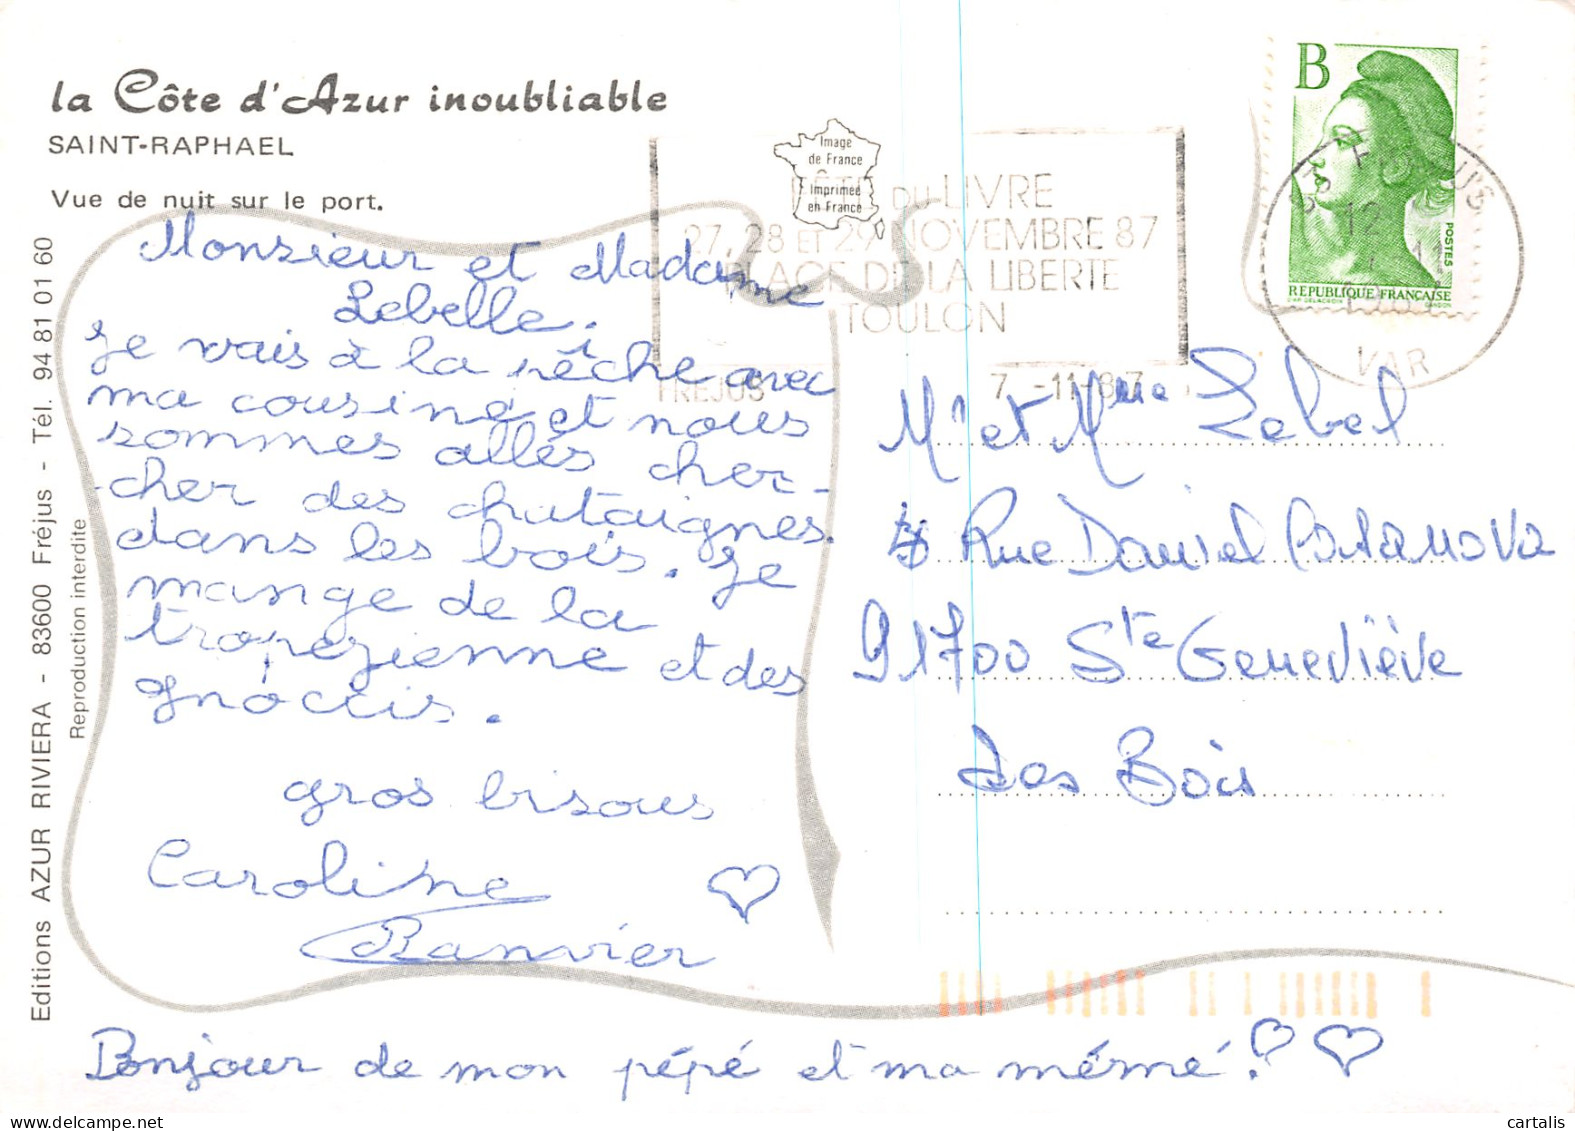 la Côte d'Azur inoubliable
SAINT-RAPHAEL
Vue de nuit sur le port.
Monsieur et Madame
Lebelle.
Je vais à la pêche avec
ma cousine et nous
sommes allés cher-
cher des chataignes.
dans les bois. Je
mange de la
tropezienne et des
gnoccis.
gros bisous
Caroline
Ranvier
Bonjour de mon pépé et ma mémé!
Editions AZUR RIVIERA - 83600 Fréjus - Tél. 94 81 01 60
Reproduction interdite
Image
de France
Imprimée
en France
FÊTE DU LIVRE
27, 28 ET 29 NOVEMBRE 87
PLACE DE LA LIBERTE
TOULON
FREJUS
7 -11-87
B
POSTES
REPUBLIQUE FRANÇAISE
12
VAR
Mr et Mme Lebel
Rue Daniel Casanova
91700 Ste Geneviève
des Bois
cartalis